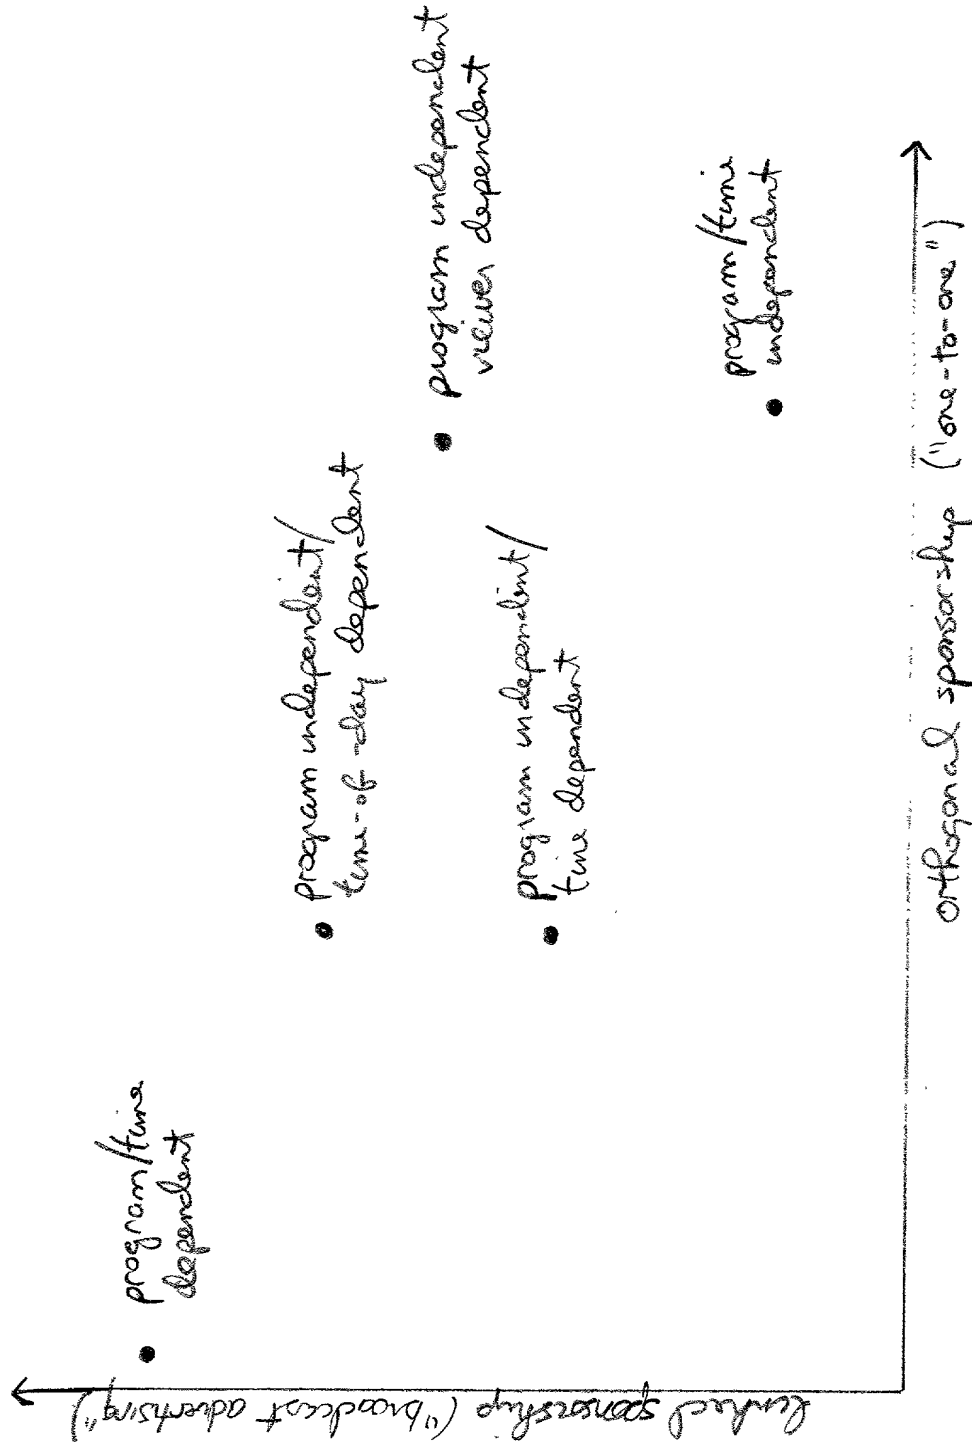 linked sponsorship ("broadcast advertising")
program/time
dependent
program independent/
time-of-day dependent
program independent/
time dependent
program independent
viewer dependent
program/time
independent
orthogonal sponsorship ("one-to-one")